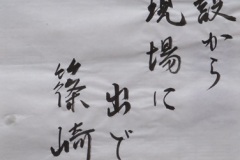 設から
現場に
出で
篠崎